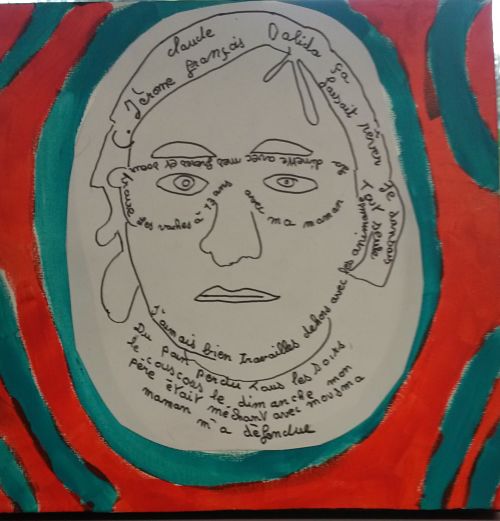 claude
C. Jérome français Dalida ça
faisait rêver je dansais
tout seule
la dinette avec mes frères et soeur
traire les vaches à 13 ans
avec ma maman
J'aimais bien travailles dehors avec les
Du pain perdu tous les soirs,
le couscous le dimanche mon
père était méchant avec mousma
maman m'a défendue